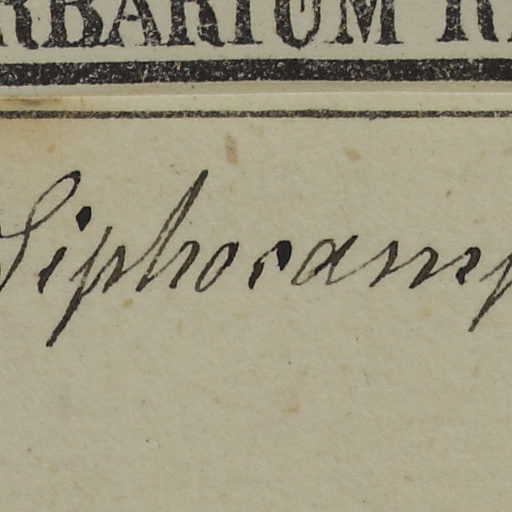 RBARIUM R
Siphocamp